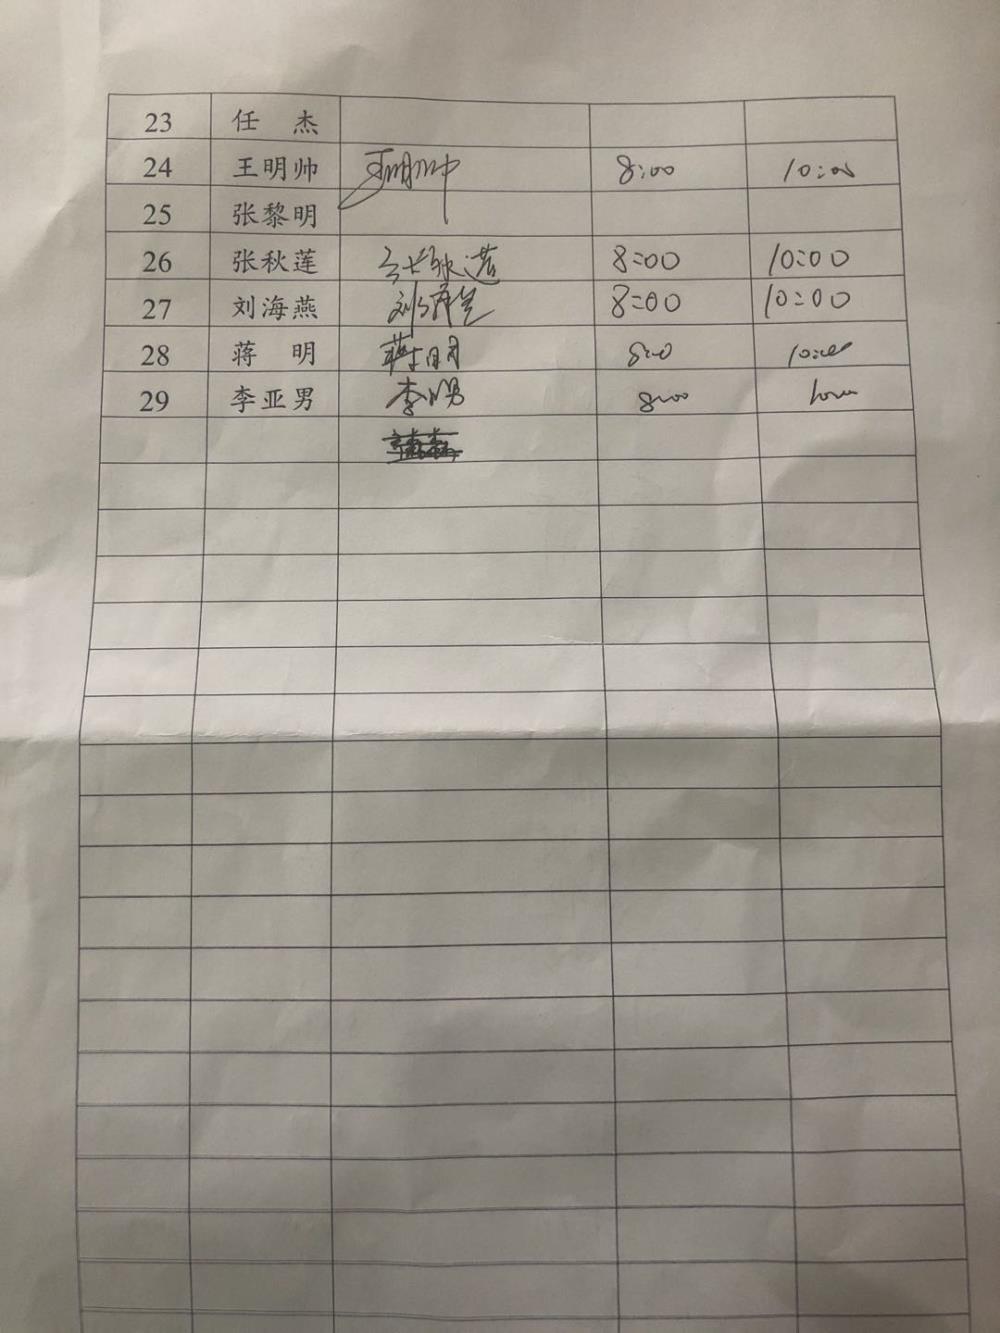 23 任 杰
24 王明帅 王明帅 8:00 10:00
25 张黎明
26 张秋莲 张秋莲 8:00 10:00
27 刘海燕 刘海燕 8:00 10:00
28 蒋 明 蒋明 8:00 10:00
29 李亚男 李亚男 8:00 10:00